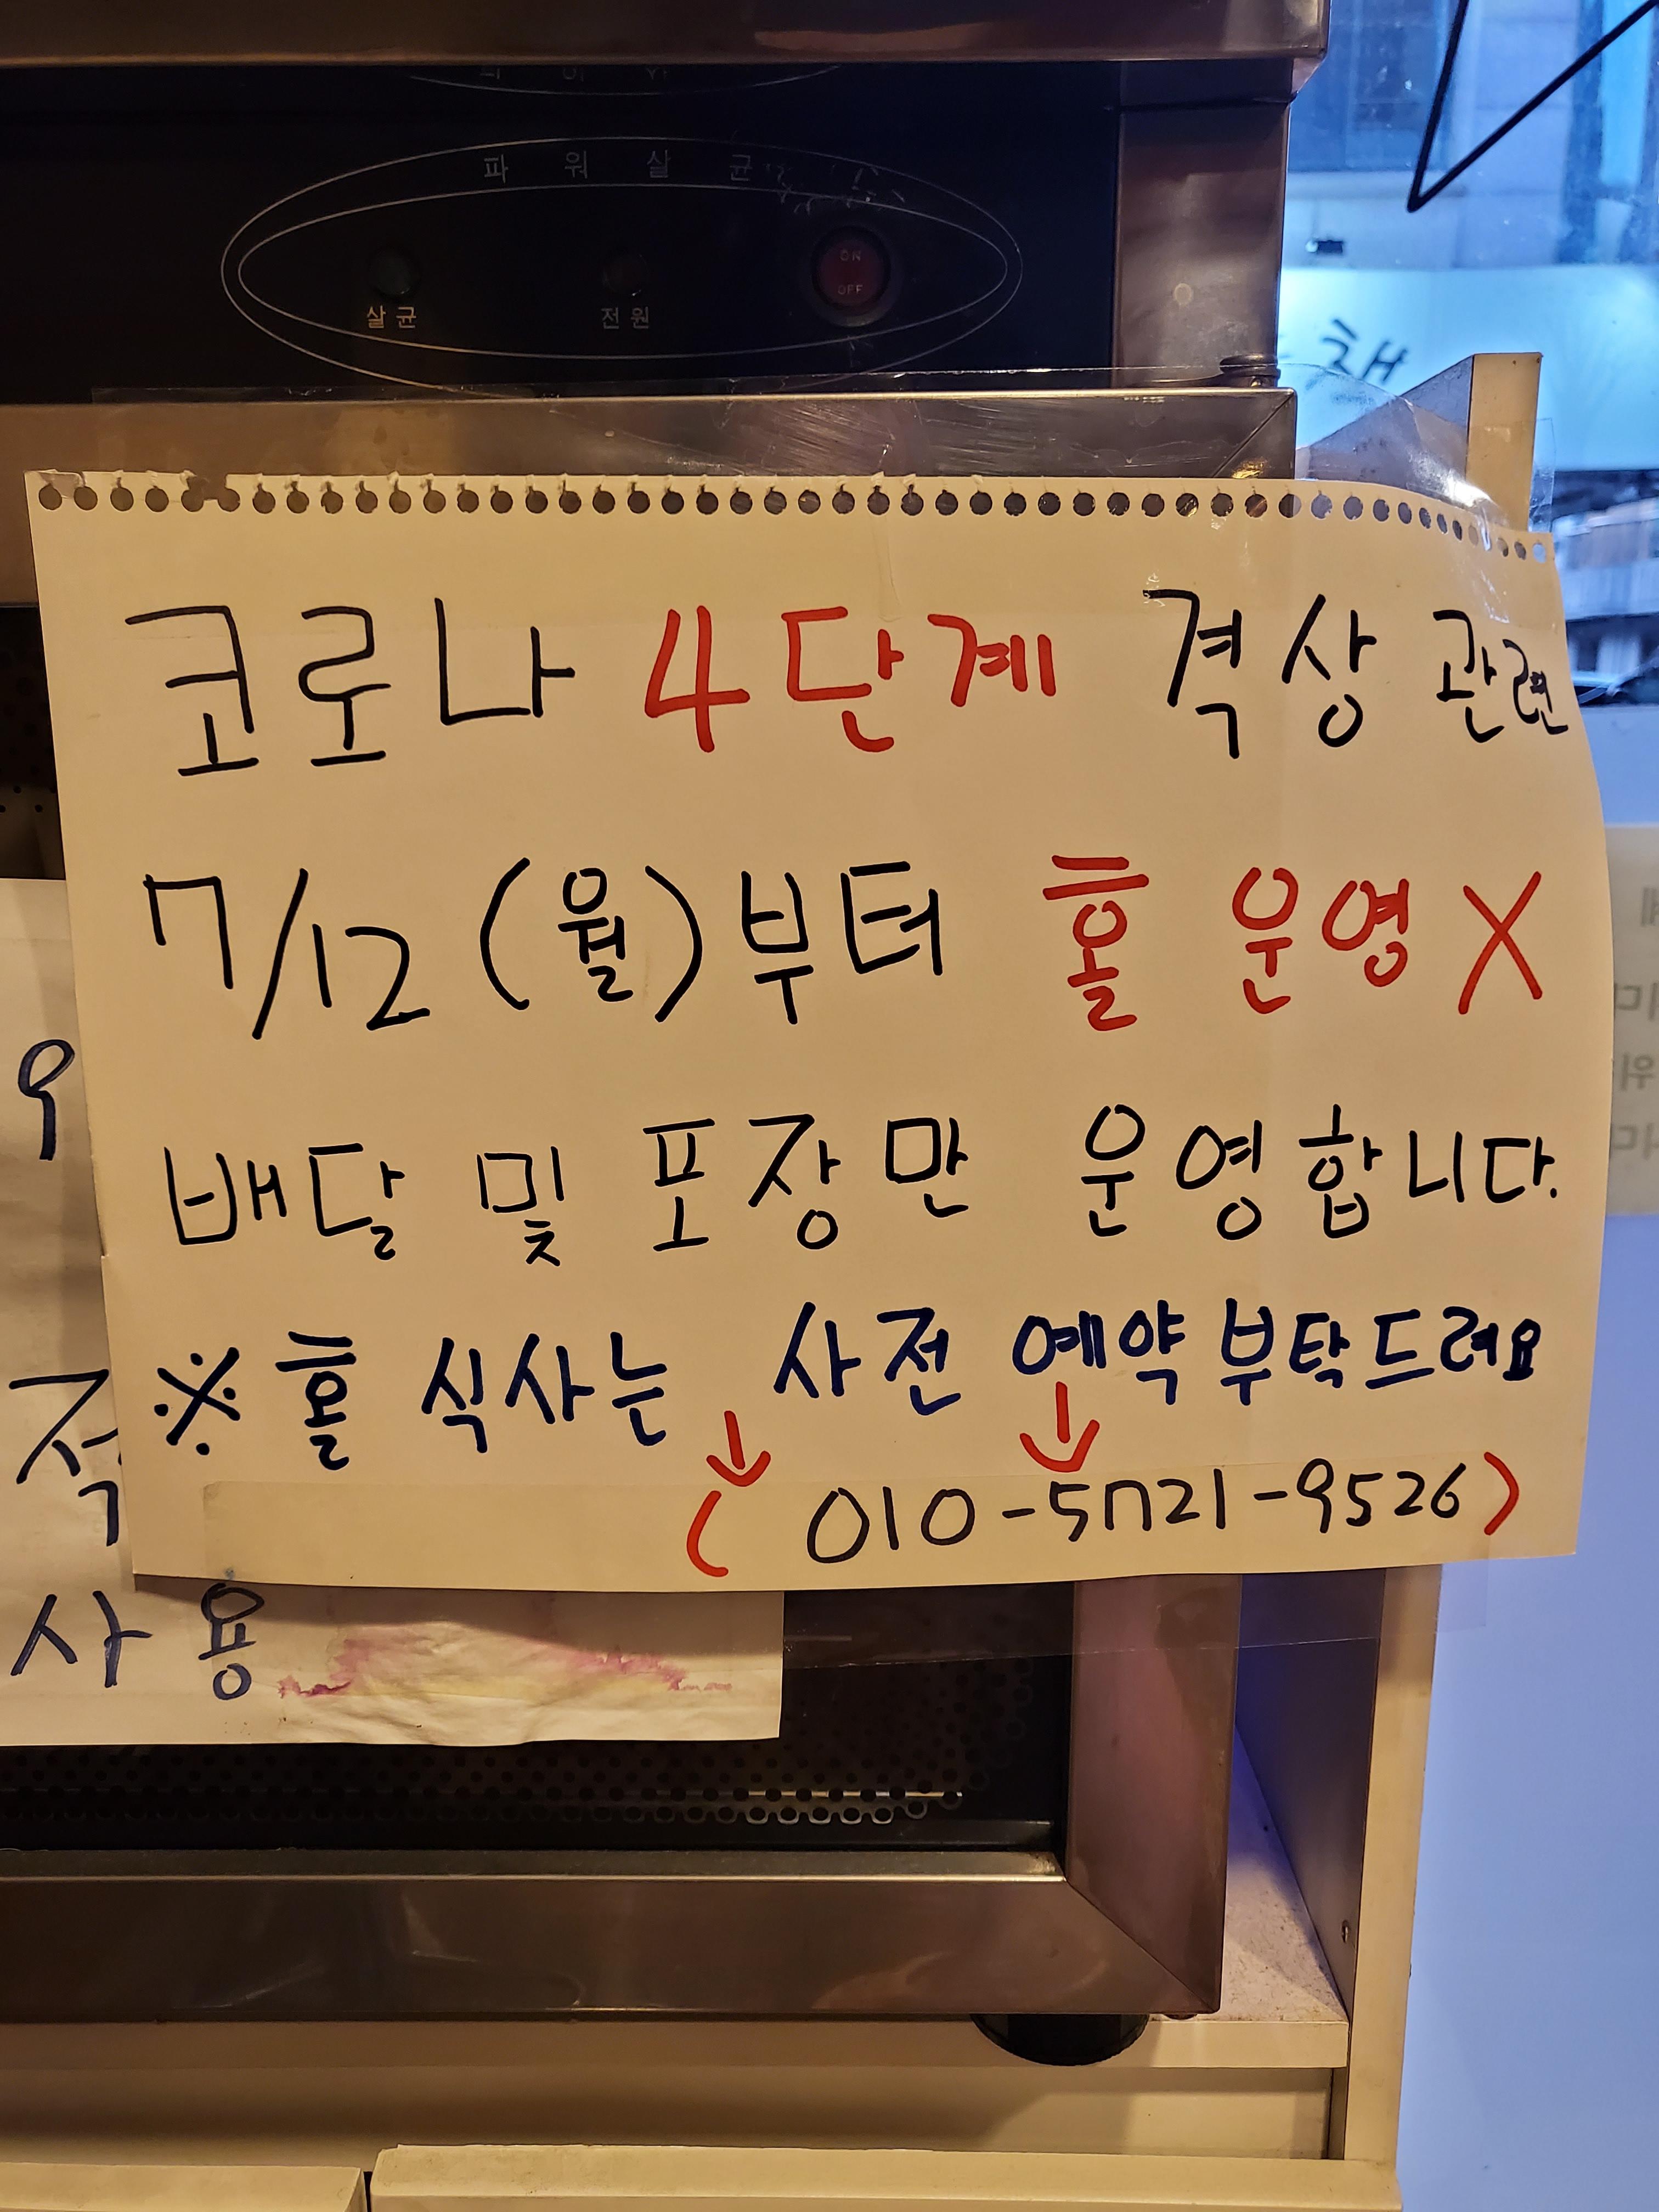 파워살균
ON
OFF
살균 전원
코로나 4단계 격상 관련
7/12 (월)부터 홀 운영 X
배달 및 포장만 운영합니다.
※ 홀 식사는 사전 예약 부탁드려요
(010-5721-9526)
사용